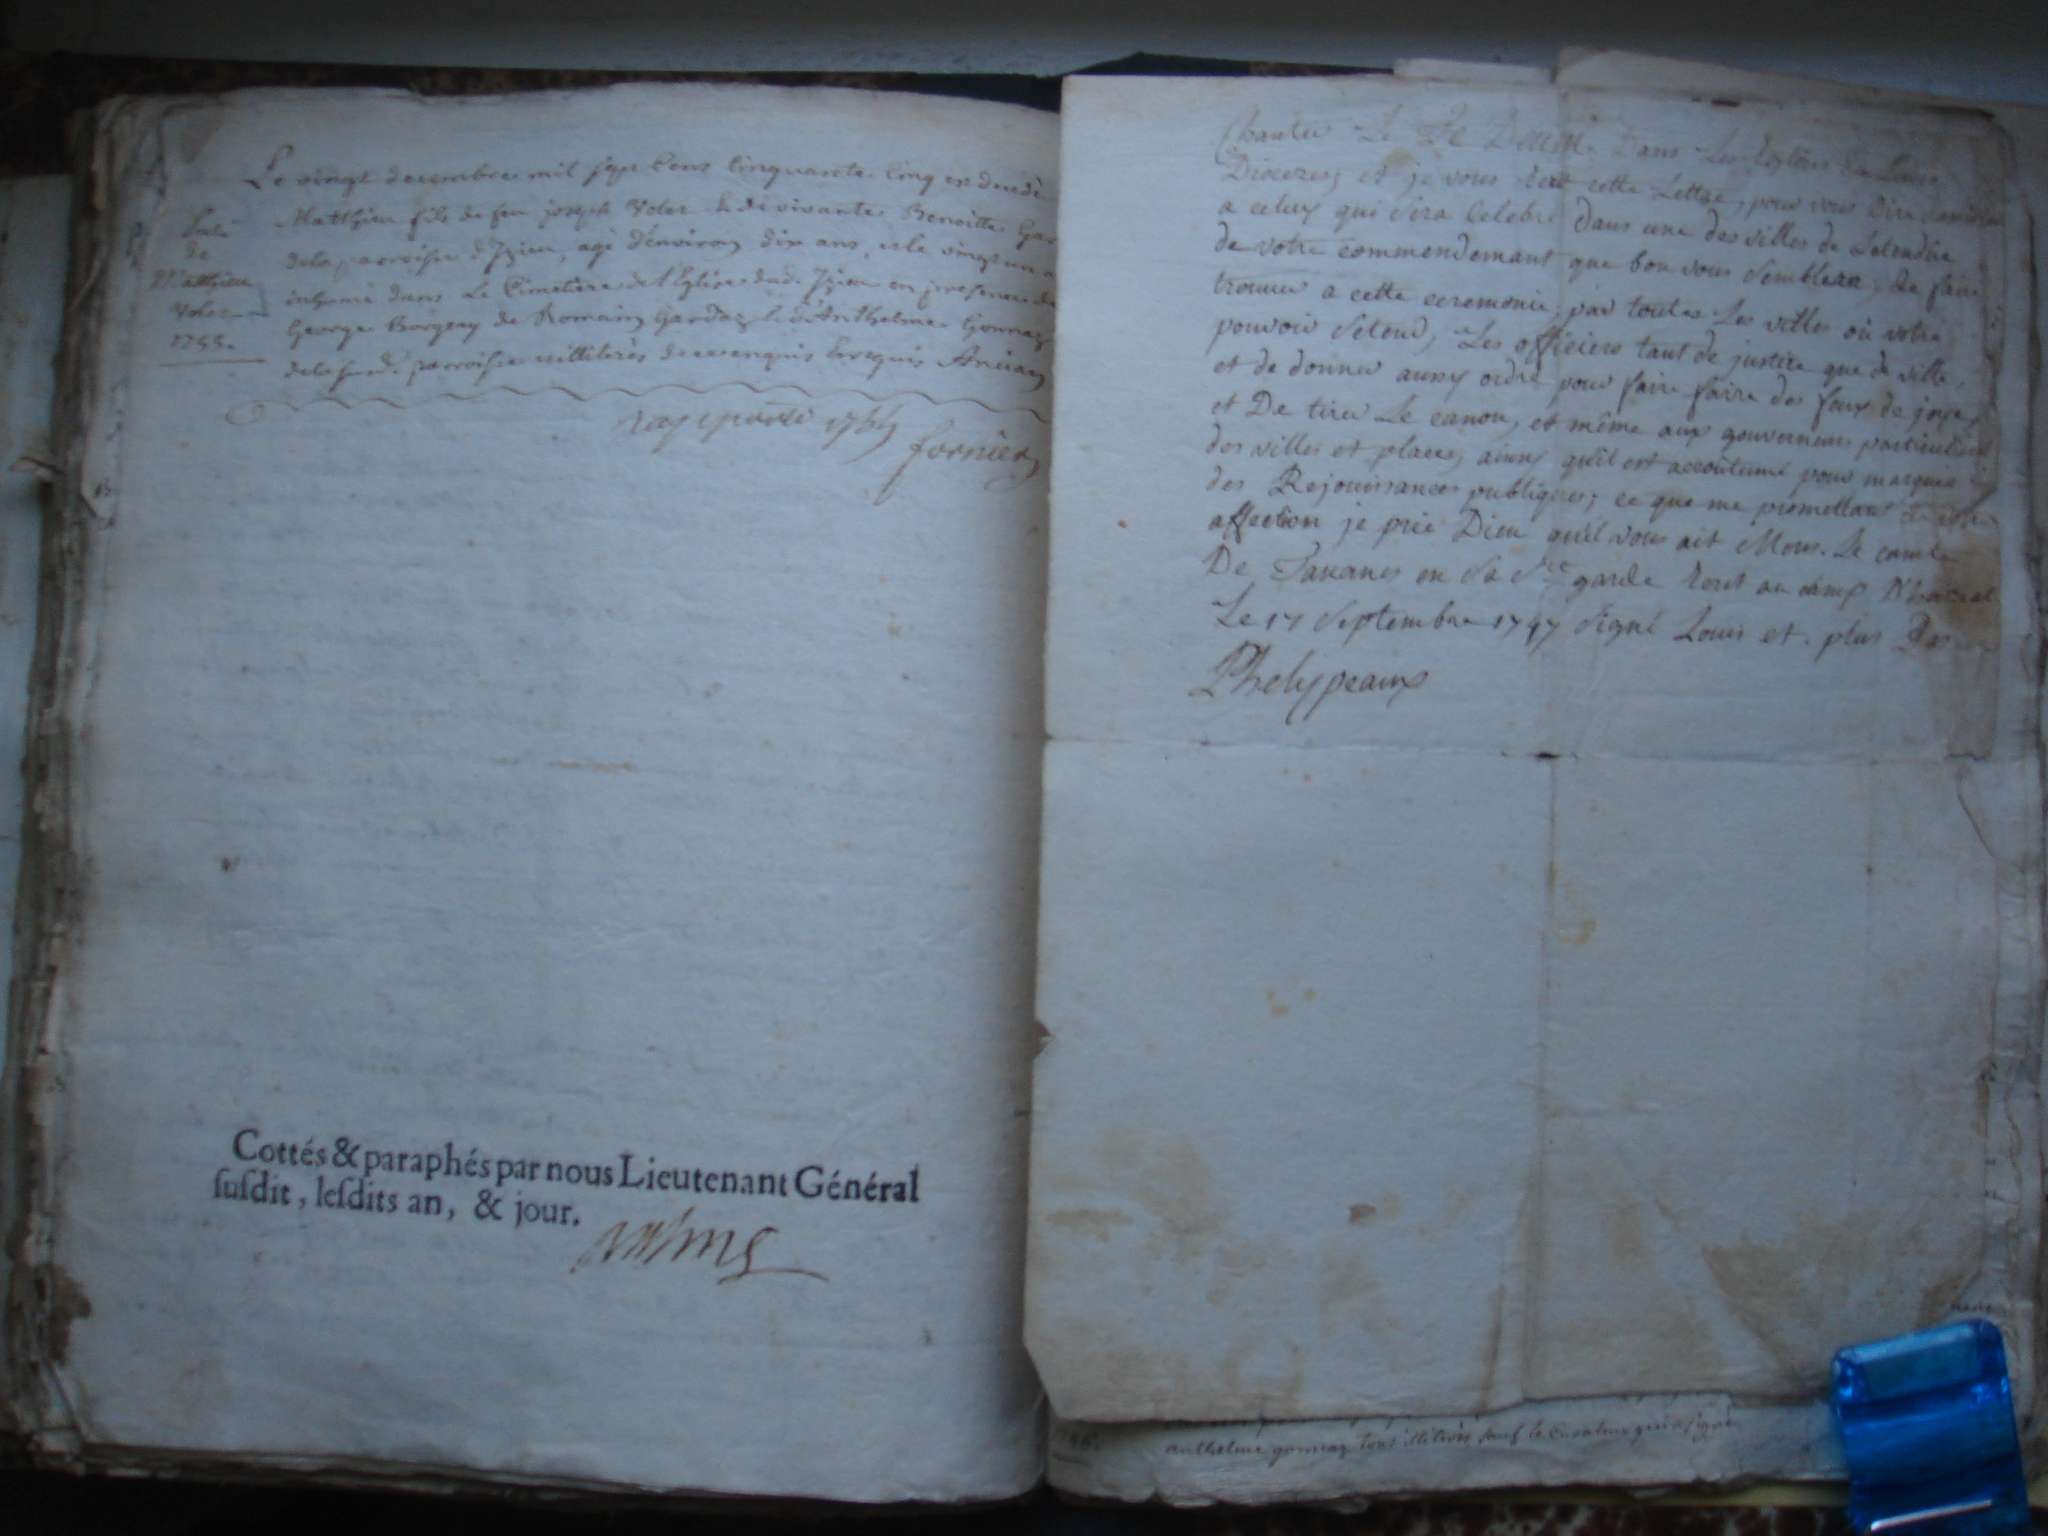 Le vingt decembre mil sept cens cinquante cinq est decedé
Matthieu fils de feu joseph Volet & de vivante Benoitte
de la parroisse d'Izieu, agé d'environ dix ans, et le vingt un a
inhumé dans Le Cimetière de l'Eglise dud. Izieu en presence de
George Borgey de Romain Gardaz & d'Anthelme Gonnaz
de la susd. parroisse illiterés de ce enquis
de
Matthieu
Volet
1755.
fornier
Cottés & paraphés par nous Lieutenant Général
susdit, lesdits an, & jour.
Chanter Le Te Deum Dans Les Eglises de Leurs
Dioceses, et je vous cette Lettre, pour vous dire
a celuy qui sera Celebré dans une des villes de L'etendüe
de votre commendemant que bon vous semblera, de faire
trouver a cette ceremonie, par toutes Les villes où votre
pouvoir s'etend, Les officiers tant de justice que de ville,
et de donner aussy ordre pour faire faire des feux de joye,
et De tirer Le canon, et même aux gouverneurs particuliers
des villes et places, ainsy qu'il est accoutumé pour marques
des Rejouissances publiques; ce que me promettant de votre
affection je prie Dieu qu'il vous ait Mons. Le comte
De Tavanes en sa Ste garde Ecrit au camp
Le 17 Septembre 1747 signé Louis et plus Bas
Phelypeaux
anthelme gonnaz tous illiterés sauf le qui a signé